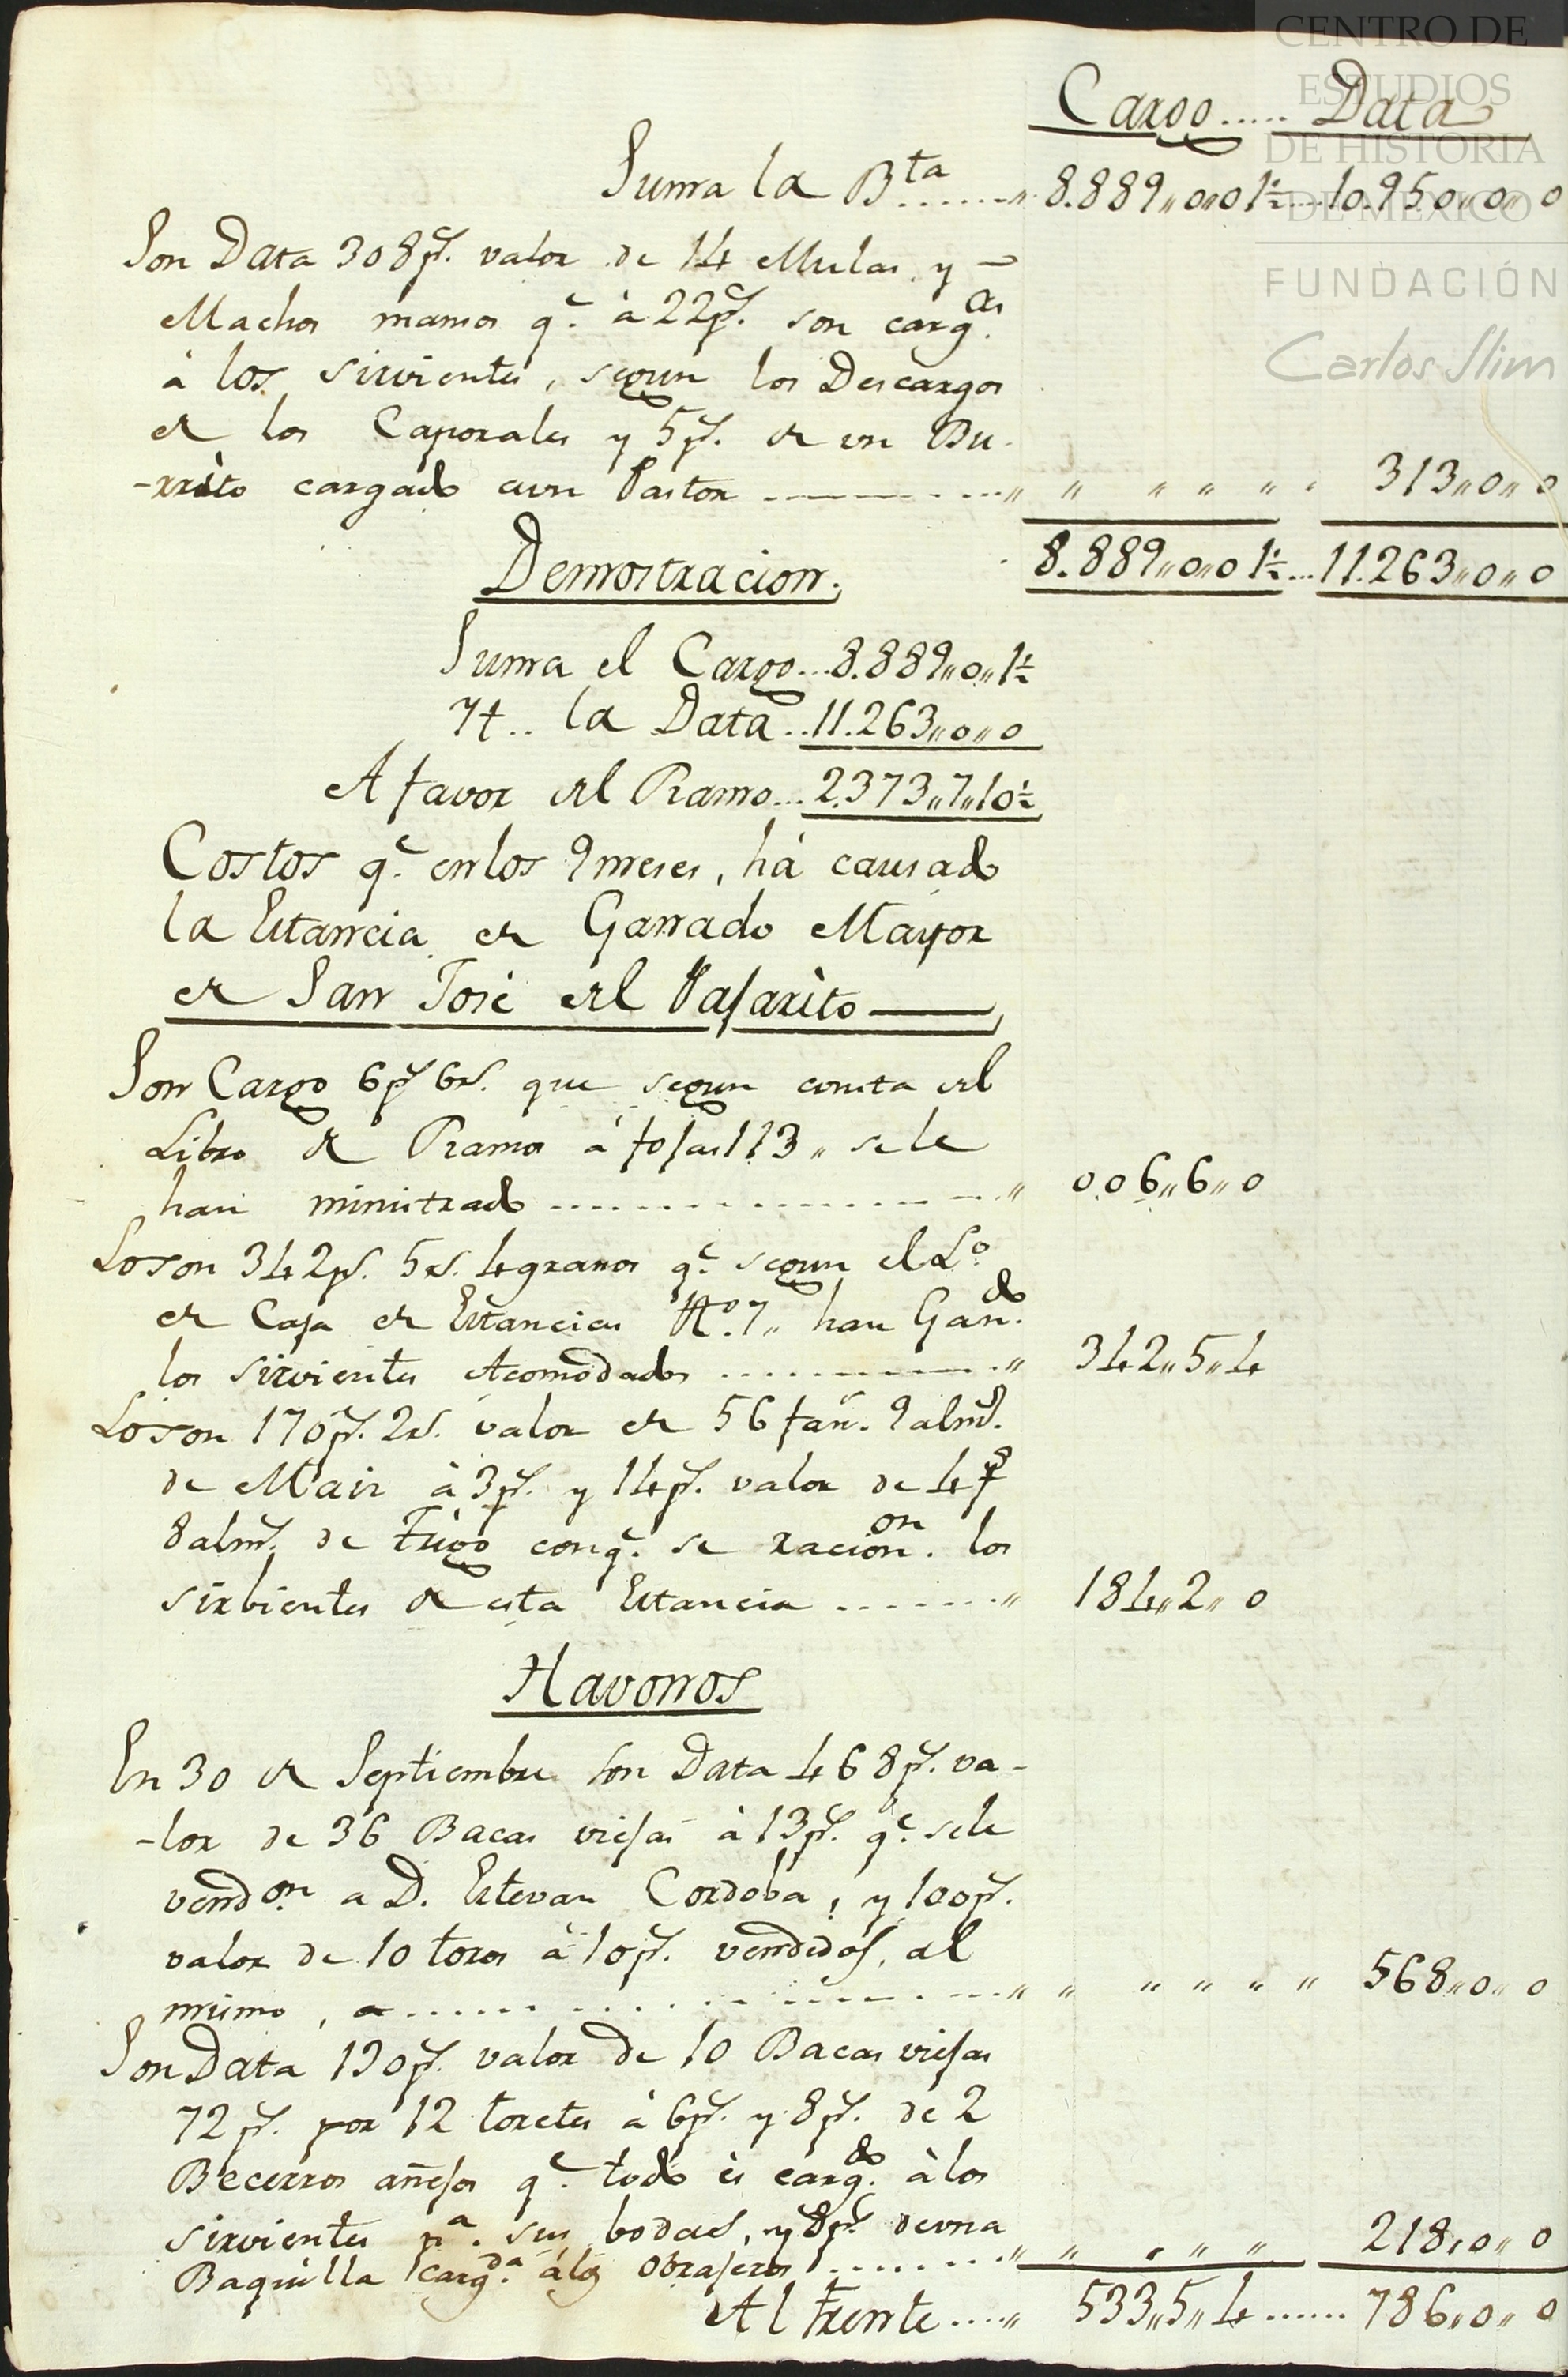 CENTRO DE
ESTUDIOS
DE HISTORIA
DE MÉXICO
FUNDACIÓN
Carlos Slim
Cargo..... Data
Suma la B.ta ......,, 8.889,,0,,01½....10.950,,0,,0
Son Data 308p.s valor de 14 Mulas y
Machos mansos q.e à 22p.s son carg.as
à los sirvientes, segun los Descargos
de los Caporales y 5p.s de un Bu-
-rrito cargado aun Pastor ...... ,, ,, ,, ,, ,, 313,,0,,0
8.889,,0,,01½...11.263,,0,,0
Demostracion.
Suma el Cargo...8.889,,0,,1½
Yt.. la Data..11.263,,0,,0
A favor del Ramo...2.373,,7,,10½
Costos q.e en los 9 meses, há causado
la Estancia de Ganado Mayor
de San José del Pajarito
Son Cargo 6p.s 6rs. que segun consta del
Libro de Ramos à fojas 113,, sele
han ministrado ............,, 006,,6,,0
Loson 342ps. 5rs. 4granos q.e segun el L.o
de Caja de Estancias N.o 7,, han Gan.do
los sirvientes Acomodados ..........,, 342,,5,,4
Loson 170p.s 2rs. valor de 56 fan.s 9alms.
de Mais à 3p.s y 14p.s valor de 4f.s
8alm.s de Trigo conq.e se racion.on los
sirbientes de esta Estancia .......,, 184,,2,,0
Havonos
En 30 de Septiembre son Data 468p.s va-
-lor de 36 Bacas viejas à 13p.s q.e sele
vend.on a D. Estevan Cordoba, y 100p.s
valor de 10 toros à 10p.s vendidos, al
mismo, ............,, ,, ,, ,, ,, ,, 568,,0,,0
Son Data 130p.s valor de 10 Bacas viejas
72p.s por 12 toretes à 6p.s y 8p.s de 2
Becerros añejos q.e todo és carg.do à los
sirvientes p.a sus bodas, y 8p.s deuna
Baquilla carg.da álos Obrajeros .......,, ,, ,, ,, ,, 218,,0,,0
Al Frente....,, 533,,5,,4 ...... 786,,0,,0